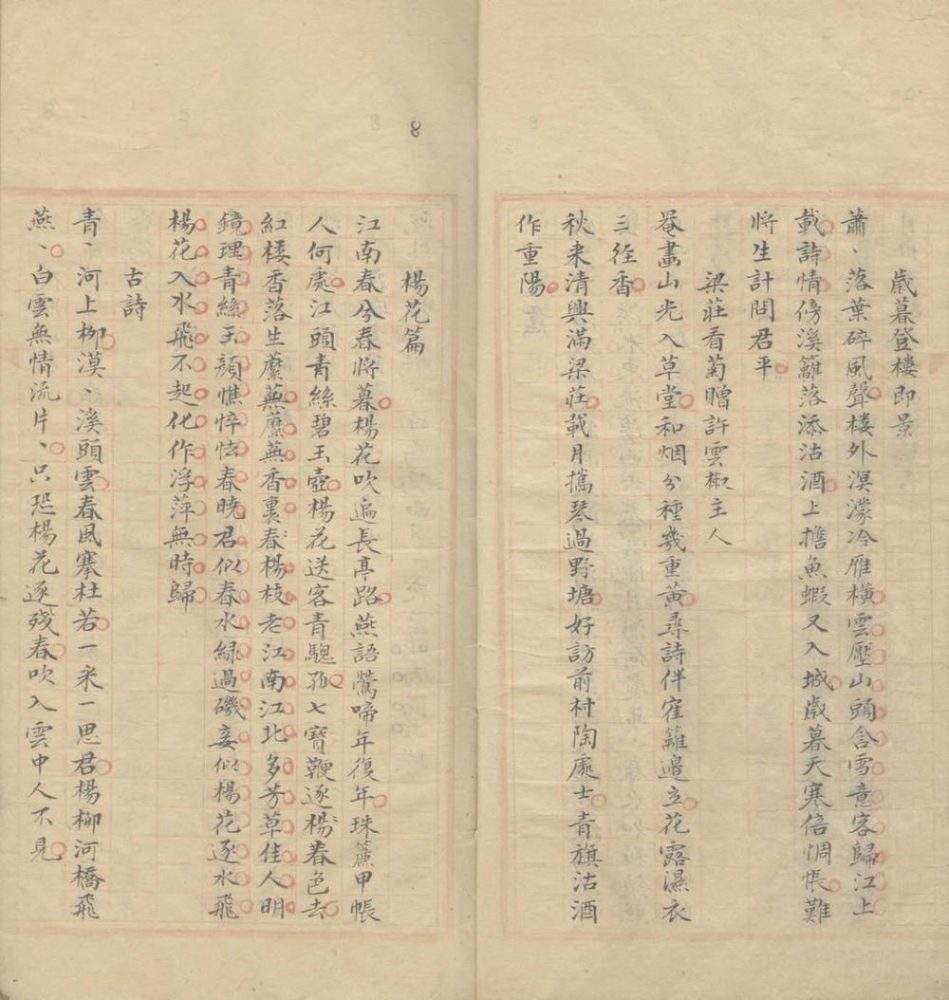 歲暮登樓即景
蕭、落葉碎風聲楼外溟濛冷雁橫雲壓山頭含雪意客歸江上
載詩情傍溪籬落添沽酒上擔魚蝦又入城歲暮天寒倍惆悵難
將生計問君平
梁莊看菊贈許雲椒主人
菴畫山光入草堂和烟分種幾重黃尋詩伴寉籬邉立花露濕衣
三徑香
秋来清興滿梁莊載月攜琴過野塘好訪前村陶處士青旗沽酒
作重陽
8
楊花篇
江南春兮春將暮楊花吹遍長亭路燕語鶯啼年復年珠簾甲帳
人何處江頭青絲碧玉壺楊花送客青驄孤七寶鞭逐楊春色去
紅楼香落生蘼蕪蘼蕪香裏春楊枝老江南江北多芳草佳人明
鏡理青絲玉顏憔悴怯春曉君似春水綠過磯妾似楊花逐水飛
楊花入水飛不起化作浮萍無時歸
古詩
青、河上柳漠、溪頭雲春風搴杜若一采一思君楊柳河橋飛
燕、白雲無情流片、只恐楊花逐殘春吹入雲中人不見